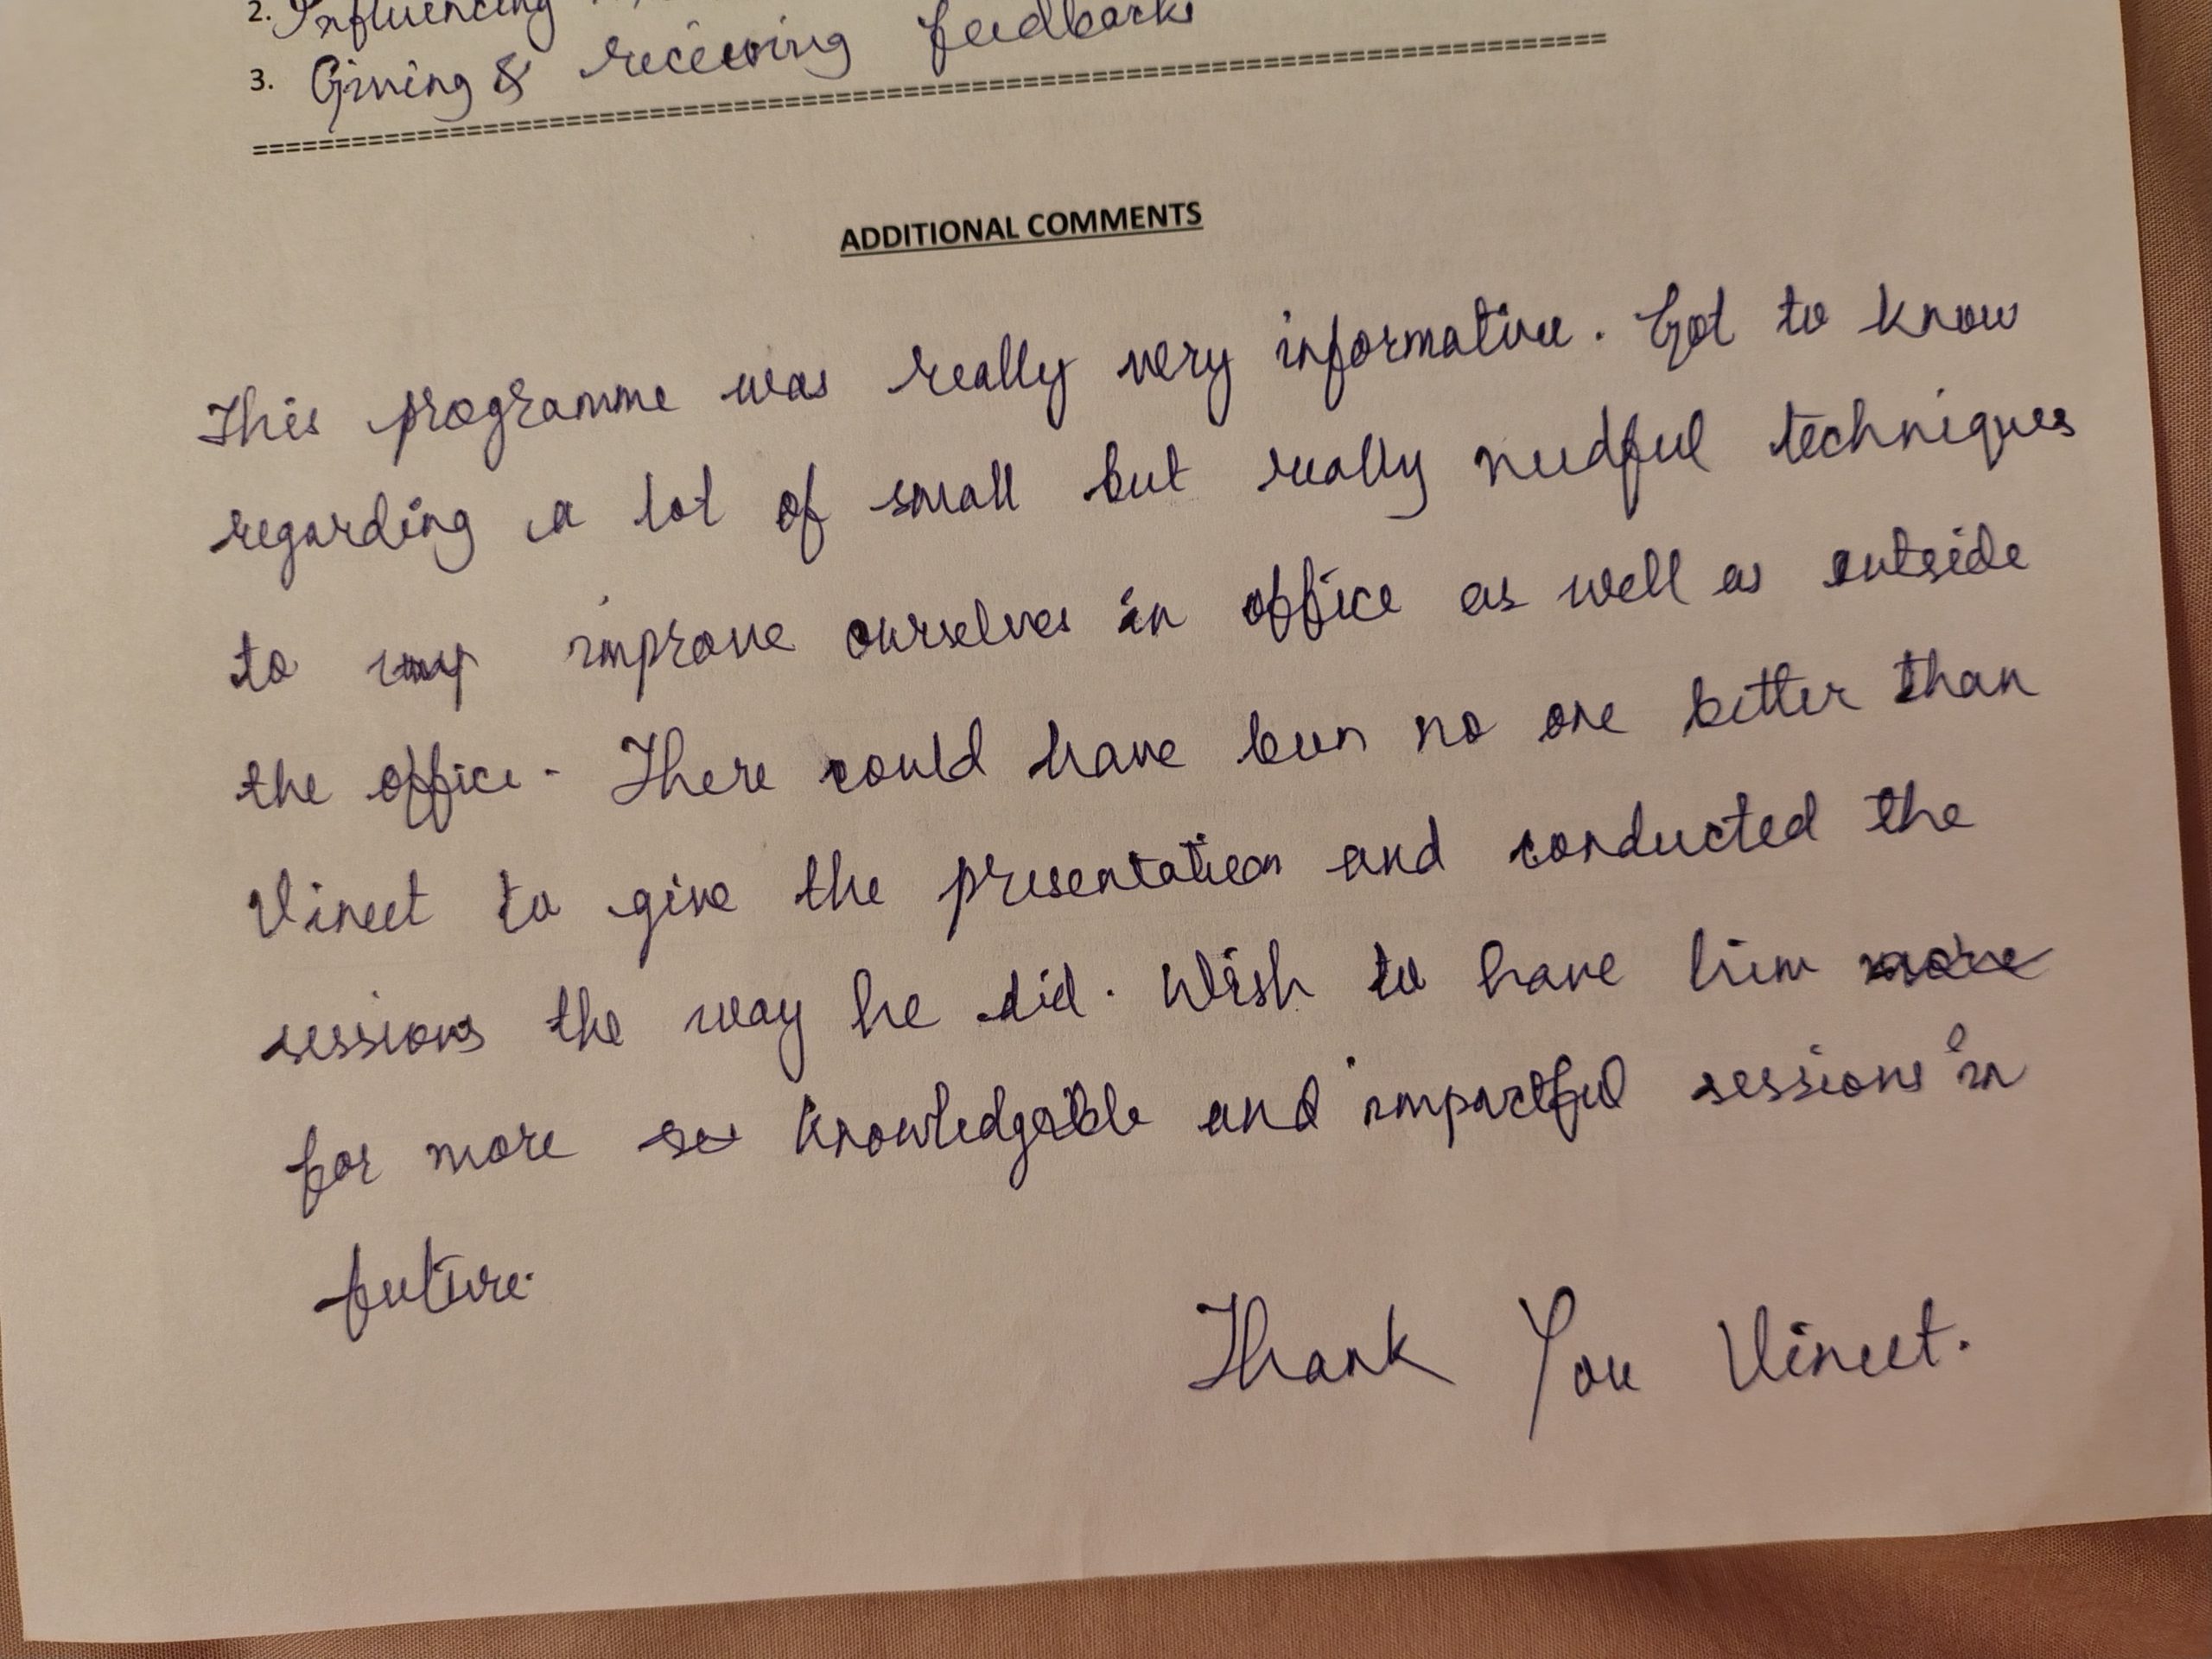 2. Influencing
3. Giving & receiving feedback
ADDITIONAL COMMENTS
This programme was really very informative. Got to know
regarding a lot of small but really needful techniques
to improve ourselves in office as well as outside
the office. There could have been no one better than
Vineet to give the presentation and conducted the
sessions the way he did. Wish to have him more
for more se knowledgable and impactful sessions in
future.
Thank You Vineet.